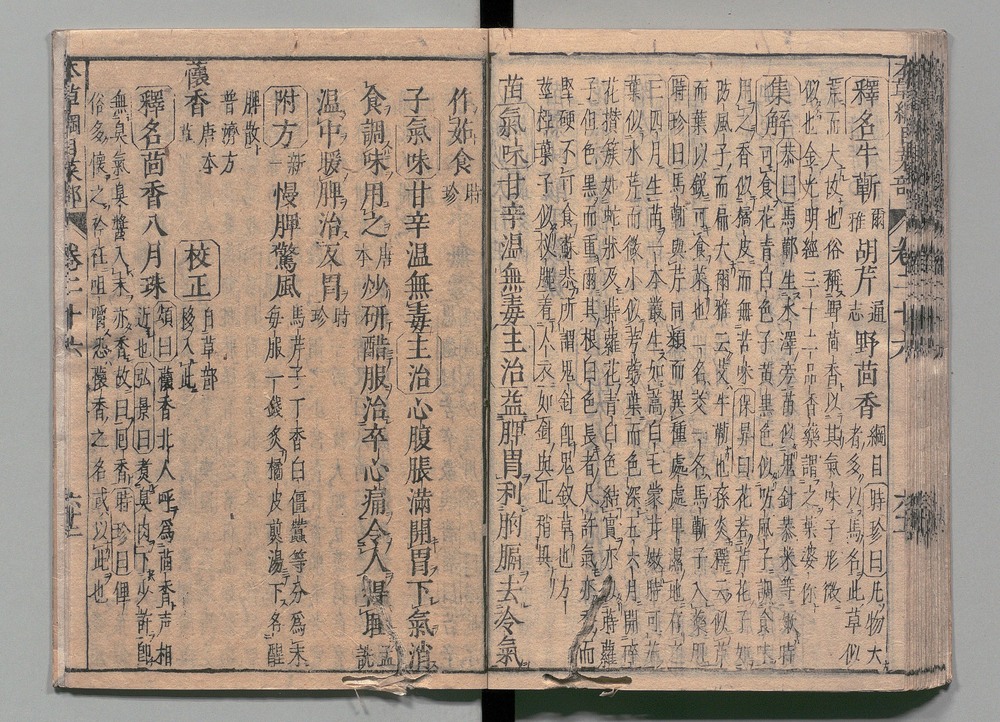 釋名牛蘄爾雅胡芹通志野茴香綱目時珍曰凡物大者多以馬名此草似
芹而大故也俗稱野茴香以其氣味子形微
似也金光明經三十二品香藥謂之葉婆你
集解恭曰馬蘄生水澤旁苗似
可食花青白色子黃黑色似防風子調食味
用之香似橘皮而無苦味保昇曰花若芹花子如
防風子而扁大爾雅云茭牛蘄也孫炎釋云似芹
而葉細銳可食菜也一名茭一名馬蘄子入藥用
時珍曰馬蘄與芹同類而異種處處卑濕地有之
三四月生苗一本叢生如蒿白毛蒙茸嫩時可茹
葉似水芹而微小似芎藭葉而色深五六月開碎
花攢簇如蛇牀及蒔蘿花青白色結實亦似蒔蘿
子但色黑而重爾其根白色長者尺許氣亦香而
堅硬不可食蘇恭所謂鬼針即鬼釵草也方
莖椏葉子似釵腳著人衣如針與此稍異
苗氣味甘辛溫無毒主治益脾胃利胸膈去冷氣
作茹食時珍
子氣味甘辛溫無毒主治心腹脹滿開胃下氣消
食調味用之唐本炒研醋服治卒心痛令人得睡孟詵
溫中暖脾治反胃時珍
附方新一慢脾驚風馬芹子丁香白僵蠶等分為末
每服一錢炙橘皮煎湯下名醒
脾散
普濟方
蘹香唐本校正自草部移入此
釋名茴香八月珠頌曰蘹香北人呼為茴香声相
近也弘景曰煮臭肉下少許即
無臭氣臭醬入末亦香故曰回香時珍曰俚
俗多懷之衿衽咀嚼恐蘹香之名或以此也